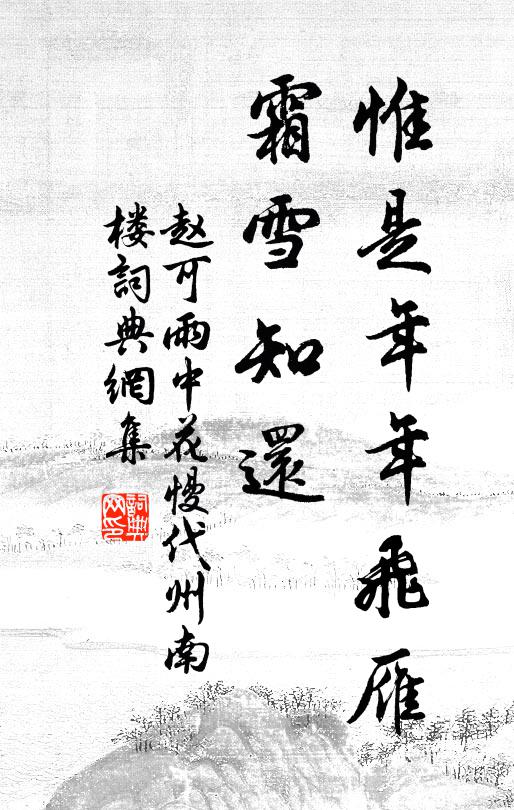 惟是年年飛雁
霜雪知還
赵可雨中花慢代州南
楼詞典網集
詞典
网印